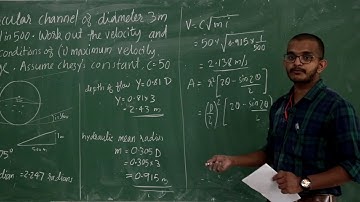 cular channel of diameter 3m
1 in 500. Work out the velocity and
conditions of (i) maximum velocity
. Assume chezy's constant, C=50
depth of flow Y=0.81 D
Y=0.81×3
= 2.43 m
hydraulic mean radius
m = 0.305 D
= 0.305×3
= 0.915 m
1m
500m
dian = 2.247 radians
V = C√mi
= 50×√0.915×1/500
= 2.138 m/s
A = r²[2θ - sin2θ
[2θ - sin2θ